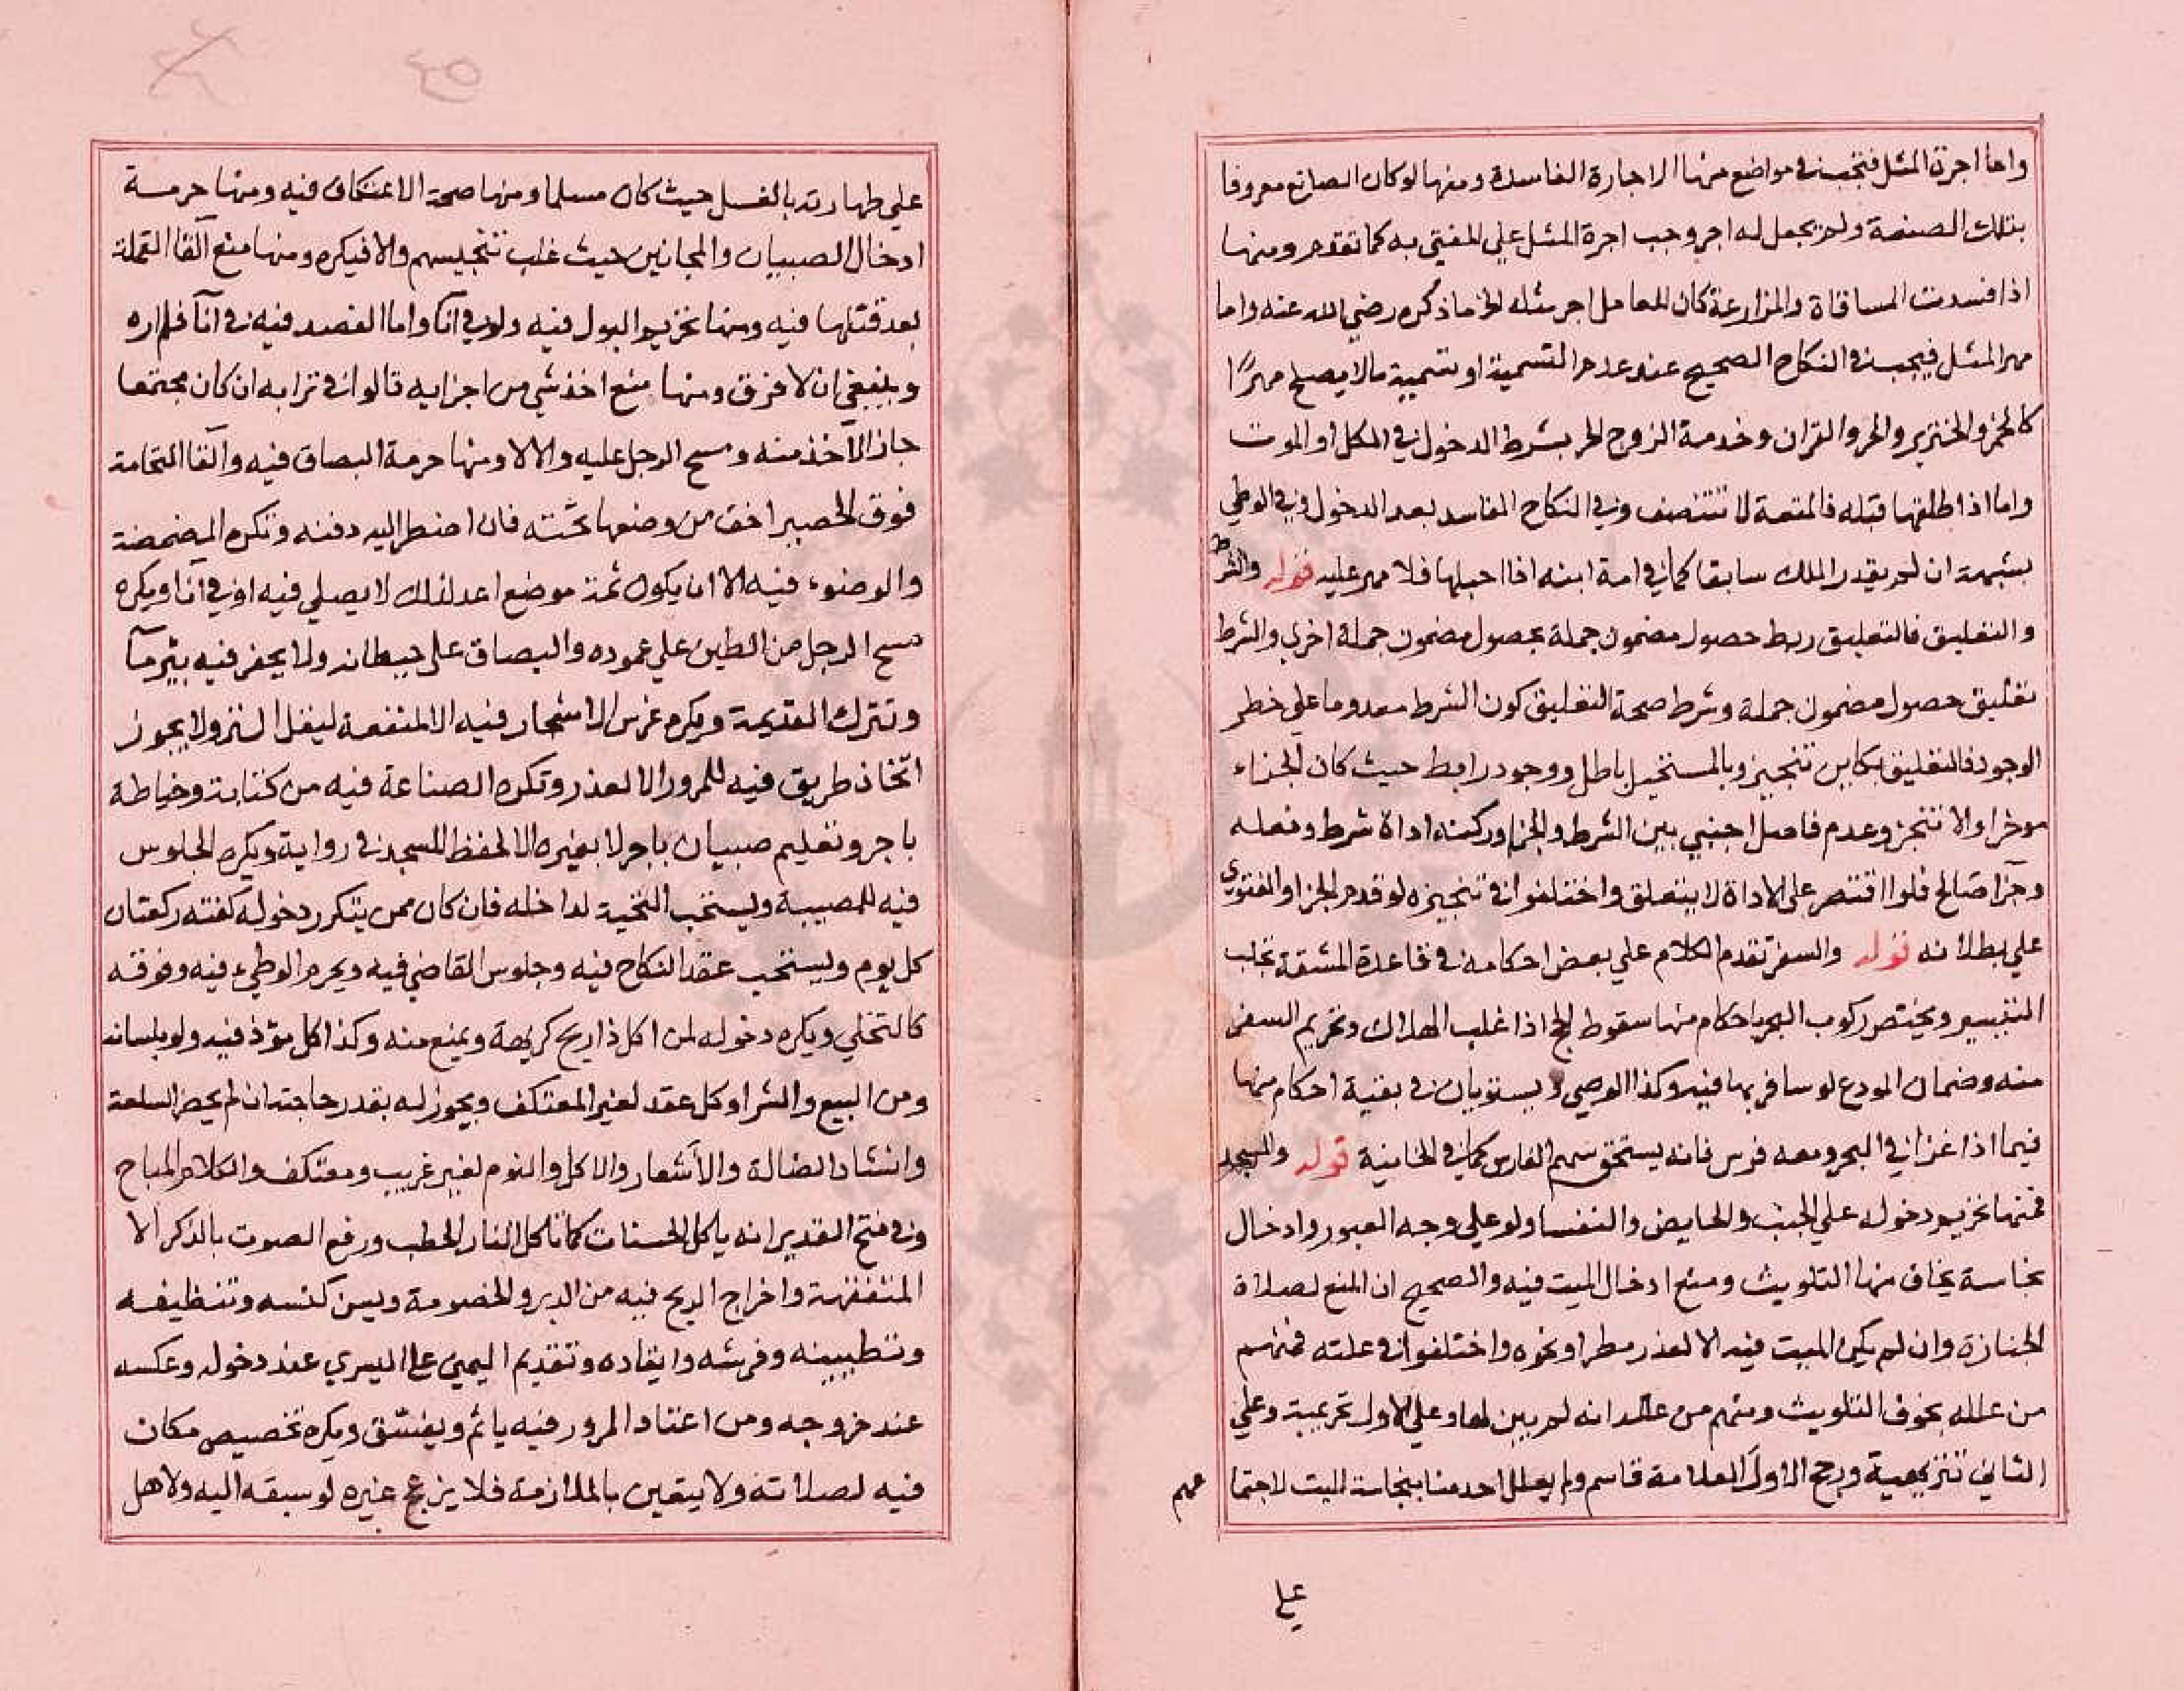 واما اجرة المثل فتجب في مواضع منها الاجارة الفاسدة ومنها لو كان الصانع معروفا
بتلك الصنعة ولم يجعل له اجر وجب اجرة المثل علي المفتي به كما تقدم ومنها
اذا فسدت المساقاة والمزارعة كان للعامل اجر مثله لخ ماذكره رضي الله عنه واما
مهر المثل فيجب في النكاح الصحيح عند عدم التسمية او تسمية مالا يصلح مهرًا
كالخمر والخنزير والحر والقران وخدمة الزوج الحر بشرط الدخول في الكل او الموت
واما اذا طلقها قبله فالمتعة لا تتنصف وفي النكاح الفاسد بعد الدخول وفي الوطي
بشبهة ان لم يقدر الملك سابقا كما في امة ابنه اذا احبلها فلا مهر عليه قوله والشرط
والتعليق فالتعليق ربط حصول مضمون جملة بحصول مضمون جملة اخري والشرط
تعليق حصول مضمون جملة وشرط صحة التعليق كون الشرط معدوما علي خطر
الوجود فالتعليق بكاين تنجيز وبالمستحيل باطل ووجود رابط حيث كان الجزاء
موخرا والا تنجز وعدم فاصل اجنبي بين الشرط والجزا وركنه اداة شرط وفعله
وجزا صالح فلو اقتصر علي الاداة لا يتعلق واختلفوا في تنجيزه لو قدم الجزا والفتوي
علي بطلانه قوله والسفر تقدم الكلام علي بعض احكامه في قاعدة المشقة تجلب
التيسير ويختص ركوب البحر باحكام منها سقوط الحج اذا غلب الهلاك وتحريم السفر
منه وضمان المودع لو سافر بها فيه وكذا الوصي ويستويان في بقية احكام منها
فيما اذا غزا في البحر ومعه فرس فانه يستحق سهم الفارس كما في الخانية قوله والمسجد
فمنها تحريم دخوله علي الجنب والحايض والنفسا ولو علي وجه العبور وادخال
نجاسة يخاف منها التلويث ومنع ادخال الميت فيه والصحيح ان المنع لصلاة
الجنازة وان لم يكن الميت فيه الا لعذر مطر او نحوه واختلفوا في علته فمنهم
من علله بخوف التلويث ومنهم من علله انه لم يبن لها وعلي الاول تحريمية وعلي
الثاني تنزيهية ورجح الاول العلامة قاسم ولم يعلل احد منا بنجاسة الميت لاجتماعهم
علي
علي طهارته بالغسل حيث كان مسلما ومنها صحة الاعتكاف فيه ومنها حرمة
ادخال الصبيان والمجانين حيث غلب تنجيسهم والا فيكره ومنها منع القا القملة
بعد قتلها فيه ومنها تحريم البول فيه ولو في انآ واما الفصد فيه في انآ فلم اره
وينبغي ان لا فرق ومنها منع اخذ شي من اجزايه قالوا في ترابه ان كان مجتمعا
جاز الاخذ منه ومسح الرجل عليه والا لا ومنها حرمة البصاق فيه والقا النخامة
فوق الحصير اخف من وضعها تحته فان اضطر اليه دفنه وتكره المضمضة
والوضوء فيه الا ان يكون ثمة موضع اعد لذلك لا يصلي فيه او في انا ويكره
مسح الرجل من الطين علي عموده والبصاق علي حيطانه ولا يحفر فيه بئر مآ
وتترك القديمة ويكره غرس الاشجار فيه الا لمنفعة ليقل النز ولا يجوز
اتخاذ طريق فيه للمرور الا لعذر وتكره الصناعة فيه من كتابة وخياطة
باجر وتعليم صبيان باجر لا بغيره الا لحفظ المسجد في رواية ويكره الجلوس
فيه للمصيبة ويستحب التحية لداخله فان كان ممن يتكرر دخوله كفته ركعتان
كل يوم ويستحب عقد النكاح فيه وجلوس القاضي فيه ويحرم الوطيء فيه وفوقه
كالتخلي ويكره دخوله لمن اكل ذا ريح كريهة ويمنع منه وكذا كل مؤذ فيه ولو بلسانه
ومن البيع والشرا وكل عقد لغير المعتكف ويجوز له بقدر حاجته ان لم يحضر السلعة
وانشاد الضالة والأشعار والاكل والنوم لغير غريب ومعتكف والكلام المباح
وفي فتح القدير انه ياكل الحسنات كما تاكل النار الحطب ورفع الصوت بالذكر الا
المتفقهة واخراج الريح فيه من الدبر والخصومة ويسن كنسه وتنظيفه
وتطييبه وفرشه وايقاده وتقديم اليمين علي اليسري عند دخوله وعكسه
عند خروجه ومن اعتاد المرور فيه ياثم ويفسق ويكره تخصيص مكان
فيه لصلاته ولا يتعين بالملازمة فلا يزعج غيره لو سبقه اليه ولاهل